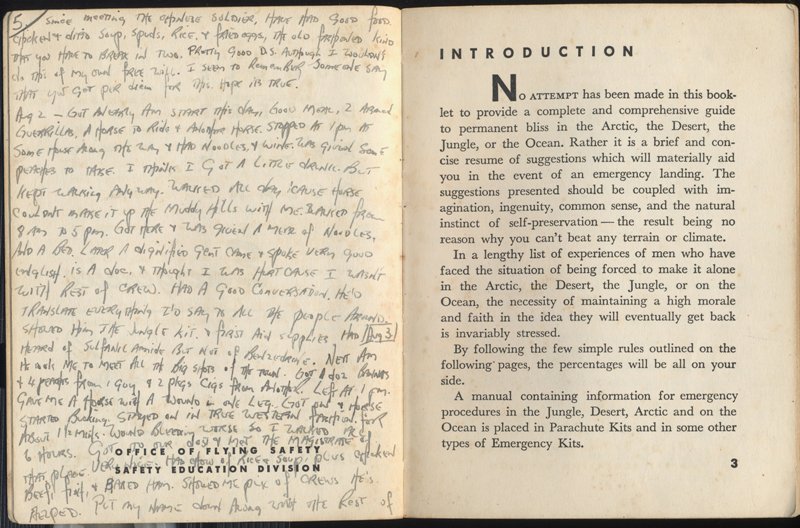 5. SINCE MEETING THE CHINESE SOLDIER, HAVE HAD GOOD FOOD.
CHICKEN & DITTO SOUP, SPUDS, RICE, & FRIED EGGS, THE OLD FASHIONED KIND
THAT YOU HAVE TO BREAK IN TWO. PRETTY GOOD D.S. ALTHOUGH I WOULDN'T
DO THIS OF MY OWN FREE WILL. I SEEM TO REMEMBER SOMEONE SAY
THAT YOU GOT PER DIEM FOR THIS. HOPE ITS TRUE.
Aug 2 – GOT AN EARLY AM START THIS DAY, GOOD MEAL, 2 ARMED
GUERRILLAS, A HORSE TO RIDE & ANOTHER HORSE. STOPPED AT 1 PM AT
SOME HOUSE ALONG THE WAY & HAD NOODLES, & WINE. WAS GIVEN SOME
PEACHES TO TAKE. I THINK I GOT A LITTLE DRUNK. BUT
KEPT WALKING ANYWAY. WALKED ALL DAY, 'CAUSE HORSE
COULDN'T MAKE IT UP THE MUDDY HILLS WITH ME. WALKED FROM
8 AM TO 5 PM. GOT HERE & WAS GIVEN A MEAL OF NOODLES,
AND A BED. LATER A DIGNIFIED GENT CAME & SPOKE VERY GOOD
ENGLISH. IS A DOC, & THOUGHT I WAS HURT CAUSE I WASN'T
WITH REST OF CREW. HAD A GOOD CONVERSATION. HE'D
TRANSLATE EVERYTHING I'D SAY TO ALL THE PEOPLE AROUND.
SHOWED HIM THE JUNGLE KIT, & FIRST AID SUPPLIES. HAD Aug 3
HEARD OF SULFANILAMIDE BUT NOT OF BENZEDRINE. NEXT AM
HE TOOK ME TO MEET ALL THE BIG SHOTS OF THE TOWN. GOT 1 DOZ
& 4 PEACHES FROM 1 GUY & 2 PKGS CIGS FROM ANOTHER. LEFT AT 1 PM.
GAVE ME A HORSE WITH A WOUND IN ONE LEG. GOT ON & HORSE
STARTED BUCKING. STAYED ON IN TRUE WESTERN FASHION FOR
ABOUT 1½ MILES. WOUND BLEEDING WORSE SO I WALKED
6 HOURS. GOT TO OUR & MET THE MAGISTRATE OF
THAT PLACE. VERY NICE. HAD CHOW OF RICE & SOUP, PLUS CHICKEN
BEEF, FISH, & BAKED HAM. SHOWED ME PIX OF CREWS HE'S
HELPED. PUT MY NAME DOWN ALONG WITH THE REST OF
OFFICE OF FLYING SAFETY
SAFETY EDUCATION DIVISION
INTRODUCTION
NO ATTEMPT has been made in this book-
let to provide a complete and comprehensive guide
to permanent bliss in the Arctic, the Desert, the
Jungle, or the Ocean. Rather it is a brief and con-
cise resume of suggestions which will materially aid
you in the event of an emergency landing. The
suggestions presented should be coupled with im-
agination, ingenuity, common sense, and the natural
instinct of self-preservation — the result being no
reason why you can't beat any terrain or climate.
In a lengthy list of experiences of men who have
faced the situation of being forced to make it alone
in the Arctic, the Desert, the Jungle, or on the
Ocean, the necessity of maintaining a high morale
and faith in the idea they will eventually get back
is invariably stressed.
By following the few simple rules outlined on the
following pages, the percentages will be all on your
side.
A manual containing information for emergency
procedures in the Jungle, Desert, Arctic and on the
Ocean is placed in Parachute Kits and in some other
types of Emergency Kits.
3